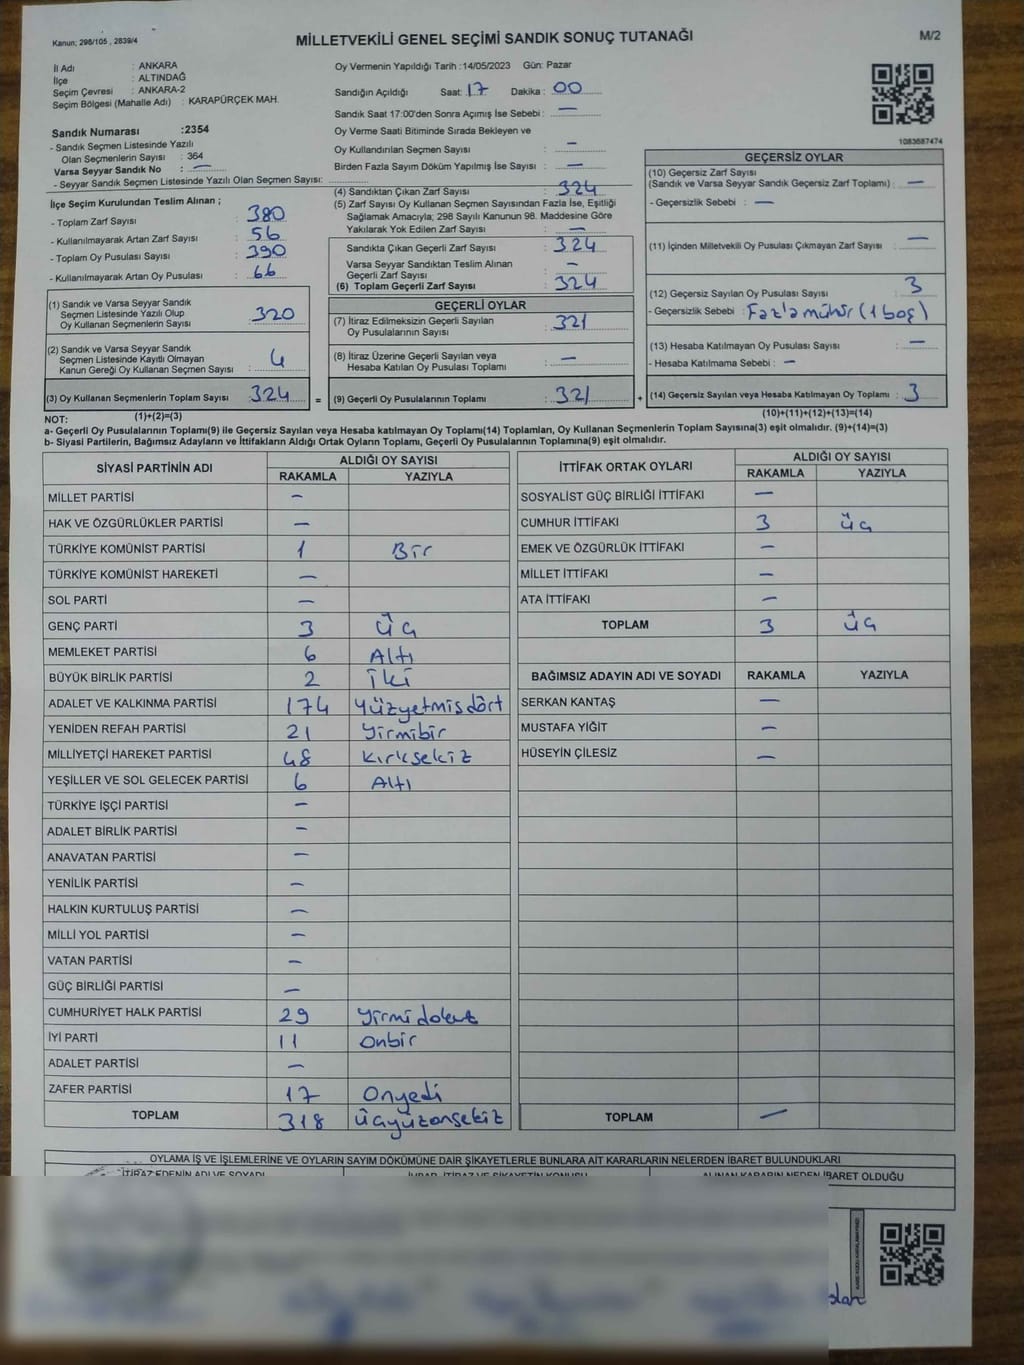 Kanun; 298/105 , 2839/4
MİLLETVEKİLİ GENEL SEÇİMİ SANDIK SONUÇ TUTANAĞI
M/2
İl Adı : ANKARA
İlçe : ALTINDAĞ
Seçim Çevresi : ANKARA-2
Seçim Bölgesi (Mahalle Adı) : KARAPÜRÇEK MAH.
Sandık Numarası :2354
- Sandık Seçmen Listesinde Yazılı
Olan Seçmenlerin Sayısı : 364
Varsa Seyyar Sandık No : —
- Seyyar Sandık Seçmen Listesinde Yazılı Olan Seçmen Sayısı:
İlçe Seçim Kurulundan Teslim Alınan ;
- Toplam Zarf Sayısı : 380
- Kullanılmayarak Artan Zarf Sayısı : 56
- Toplam Oy Pusulası Sayısı : 390
- Kullanılmayarak Artan Oy Pusulası : 66
(1) Sandık ve Varsa Seyyar Sandık
Seçmen Listesinde Yazılı Olup
Oy Kullanan Seçmenlerin Sayısı : 320
(2) Sandık ve Varsa Seyyar Sandık
Seçmen Listesinde Kayıtlı Olmayan
Kanun Gereği Oy Kullanan Seçmen Sayısı : 4
(3) Oy Kullanan Seçmenlerin Toplam Sayısı : 324 =
(1)+(2)=(3)
Oy Vermenin Yapıldığı Tarih :14/05/2023 Gün: Pazar
Sandığın Açıldığı Saat: 17 Dakika : 00
Sandık Saat 17:00'den Sonra Açımış İse Sebebi : —
Oy Verme Saati Bitiminde Sırada Bekleyen ve
Oy Kullandırılan Seçmen Sayısı : —
Birden Fazla Sayım Döküm Yapılmış İse Sayısı : —
(4) Sandıktan Çıkan Zarf Sayısı : 324
(5) Zarf Sayısı Oy Kullanan Seçmen Sayısından Fazla İse, Eşitliği
Sağlamak Amacıyla; 298 Sayılı Kanunun 98. Maddesine Göre
Yakılarak Yok Edilen Zarf Sayısı : —
Sandıkta Çıkan Geçerli Zarf Sayısı : 324
Varsa Seyyar Sandıktan Teslim Alınan
Geçerli Zarf Sayısı : —
(6) Toplam Geçerli Zarf Sayısı : 324
GEÇERLİ OYLAR
(7) İtiraz Edilmeksizin Geçerli Sayılan
Oy Pusulalarının Sayısı : 321
(8) İtiraz Üzerine Geçerli Sayılan veya
Hesaba Katılan Oy Pusulası Toplamı : —
(9) Geçerli Oy Pusulalarının Toplamı : 321 +
1083687474
GEÇERSİZ OYLAR
(10) Geçersiz Zarf Sayısı
(Sandık ve Varsa Seyyar Sandık Geçersiz Zarf Toplamı) : —
- Geçersizlik Sebebi : —
(11) İçinden Milletvekili Oy Pusulası Çıkmayan Zarf Sayısı : —
(12) Geçersiz Sayılan Oy Pusulası Sayısı : 3
- Geçersizlik Sebebi : Fazla mühür (1 boş)
(13) Hesaba Katılmayan Oy Pusulası Sayısı : —
- Hesaba Katılmama Sebebi : —
(14) Geçersiz Sayılan veya Hesaba Katılmayan Oy Toplamı : 3
(10)+(11)+(12)+(13)=(14)
NOT:
a- Geçerli Oy Pusulalarının Toplamı(9) ile Geçersiz Sayılan veya Hesaba Katılmayan Oy Toplamı(14) Toplamları, Oy Kullanan Seçmenlerin Toplam Sayısına(3) eşit olmalıdır. (9)+(14)=(3)
b- Siyasi Partilerin, Bağımsız Adayların ve İttifakların Aldığı Ortak Oyların Toplamı, Geçerli Oy Pusulalarının Toplamına(9) eşit olmalıdır.
SİYASİ PARTİNİN ADI
ALDIĞI OY SAYISI
RAKAMLA YAZIYLA
MİLLET PARTİSİ —
HAK VE ÖZGÜRLÜKLER PARTİSİ —
TÜRKİYE KOMÜNİST PARTİSİ 1 Bir
TÜRKİYE KOMÜNİST HAREKETİ —
SOL PARTİ —
GENÇ PARTİ 3 üç
MEMLEKET PARTİSİ 6 Altı
BÜYÜK BİRLİK PARTİSİ 2 iki
ADALET VE KALKINMA PARTİSİ 174 Yüzyetmisdört
YENİDEN REFAH PARTİSİ 21 Yirmibir
MİLLİYETÇİ HAREKET PARTİSİ 48 kırksekiz
YEŞİLLER VE SOL GELECEK PARTİSİ 6 Altı
TÜRKİYE İŞÇİ PARTİSİ —
ADALET BİRLİK PARTİSİ —
ANAVATAN PARTİSİ —
YENİLİK PARTİSİ —
HALKIN KURTULUŞ PARTİSİ —
MİLLİ YOL PARTİSİ —
VATAN PARTİSİ —
GÜÇ BİRLİĞİ PARTİSİ —
CUMHURİYET HALK PARTİSİ 29 Yirmidokuz
İYİ PARTİ 11 Onbir
ADALET PARTİSİ —
ZAFER PARTİSİ 17 Onyedi
TOPLAM 318 üçyüzonsekiz
İTTİFAK ORTAK OYLARI
ALDIĞI OY SAYISI
RAKAMLA YAZIYLA
SOSYALİST GÜÇ BİRLİĞİ İTTİFAKI —
CUMHUR İTTİFAKI 3 üç
EMEK VE ÖZGÜRLÜK İTTİFAKI —
MİLLET İTTİFAKI —
ATA İTTİFAKI —
TOPLAM 3 üç
BAĞIMSIZ ADAYIN ADI VE SOYADI RAKAMLA YAZIYLA
SERKAN KANTAŞ —
MUSTAFA YİĞİT —
HÜSEYİN ÇİLESİZ —
TOPLAM —
OYLAMA İŞ VE İŞLEMLERİNE VE OYLARIN SAYIM DÖKÜMÜNE DAİR ŞİKAYETLERLE BUNLARA AİT KARARLARIN NELERDEN İBARET BULUNDUKLARI
İTİRAZ EDENİN ADI VE SOYADI
ALINAN KARARIN NEDEN İBARET OLDUĞU